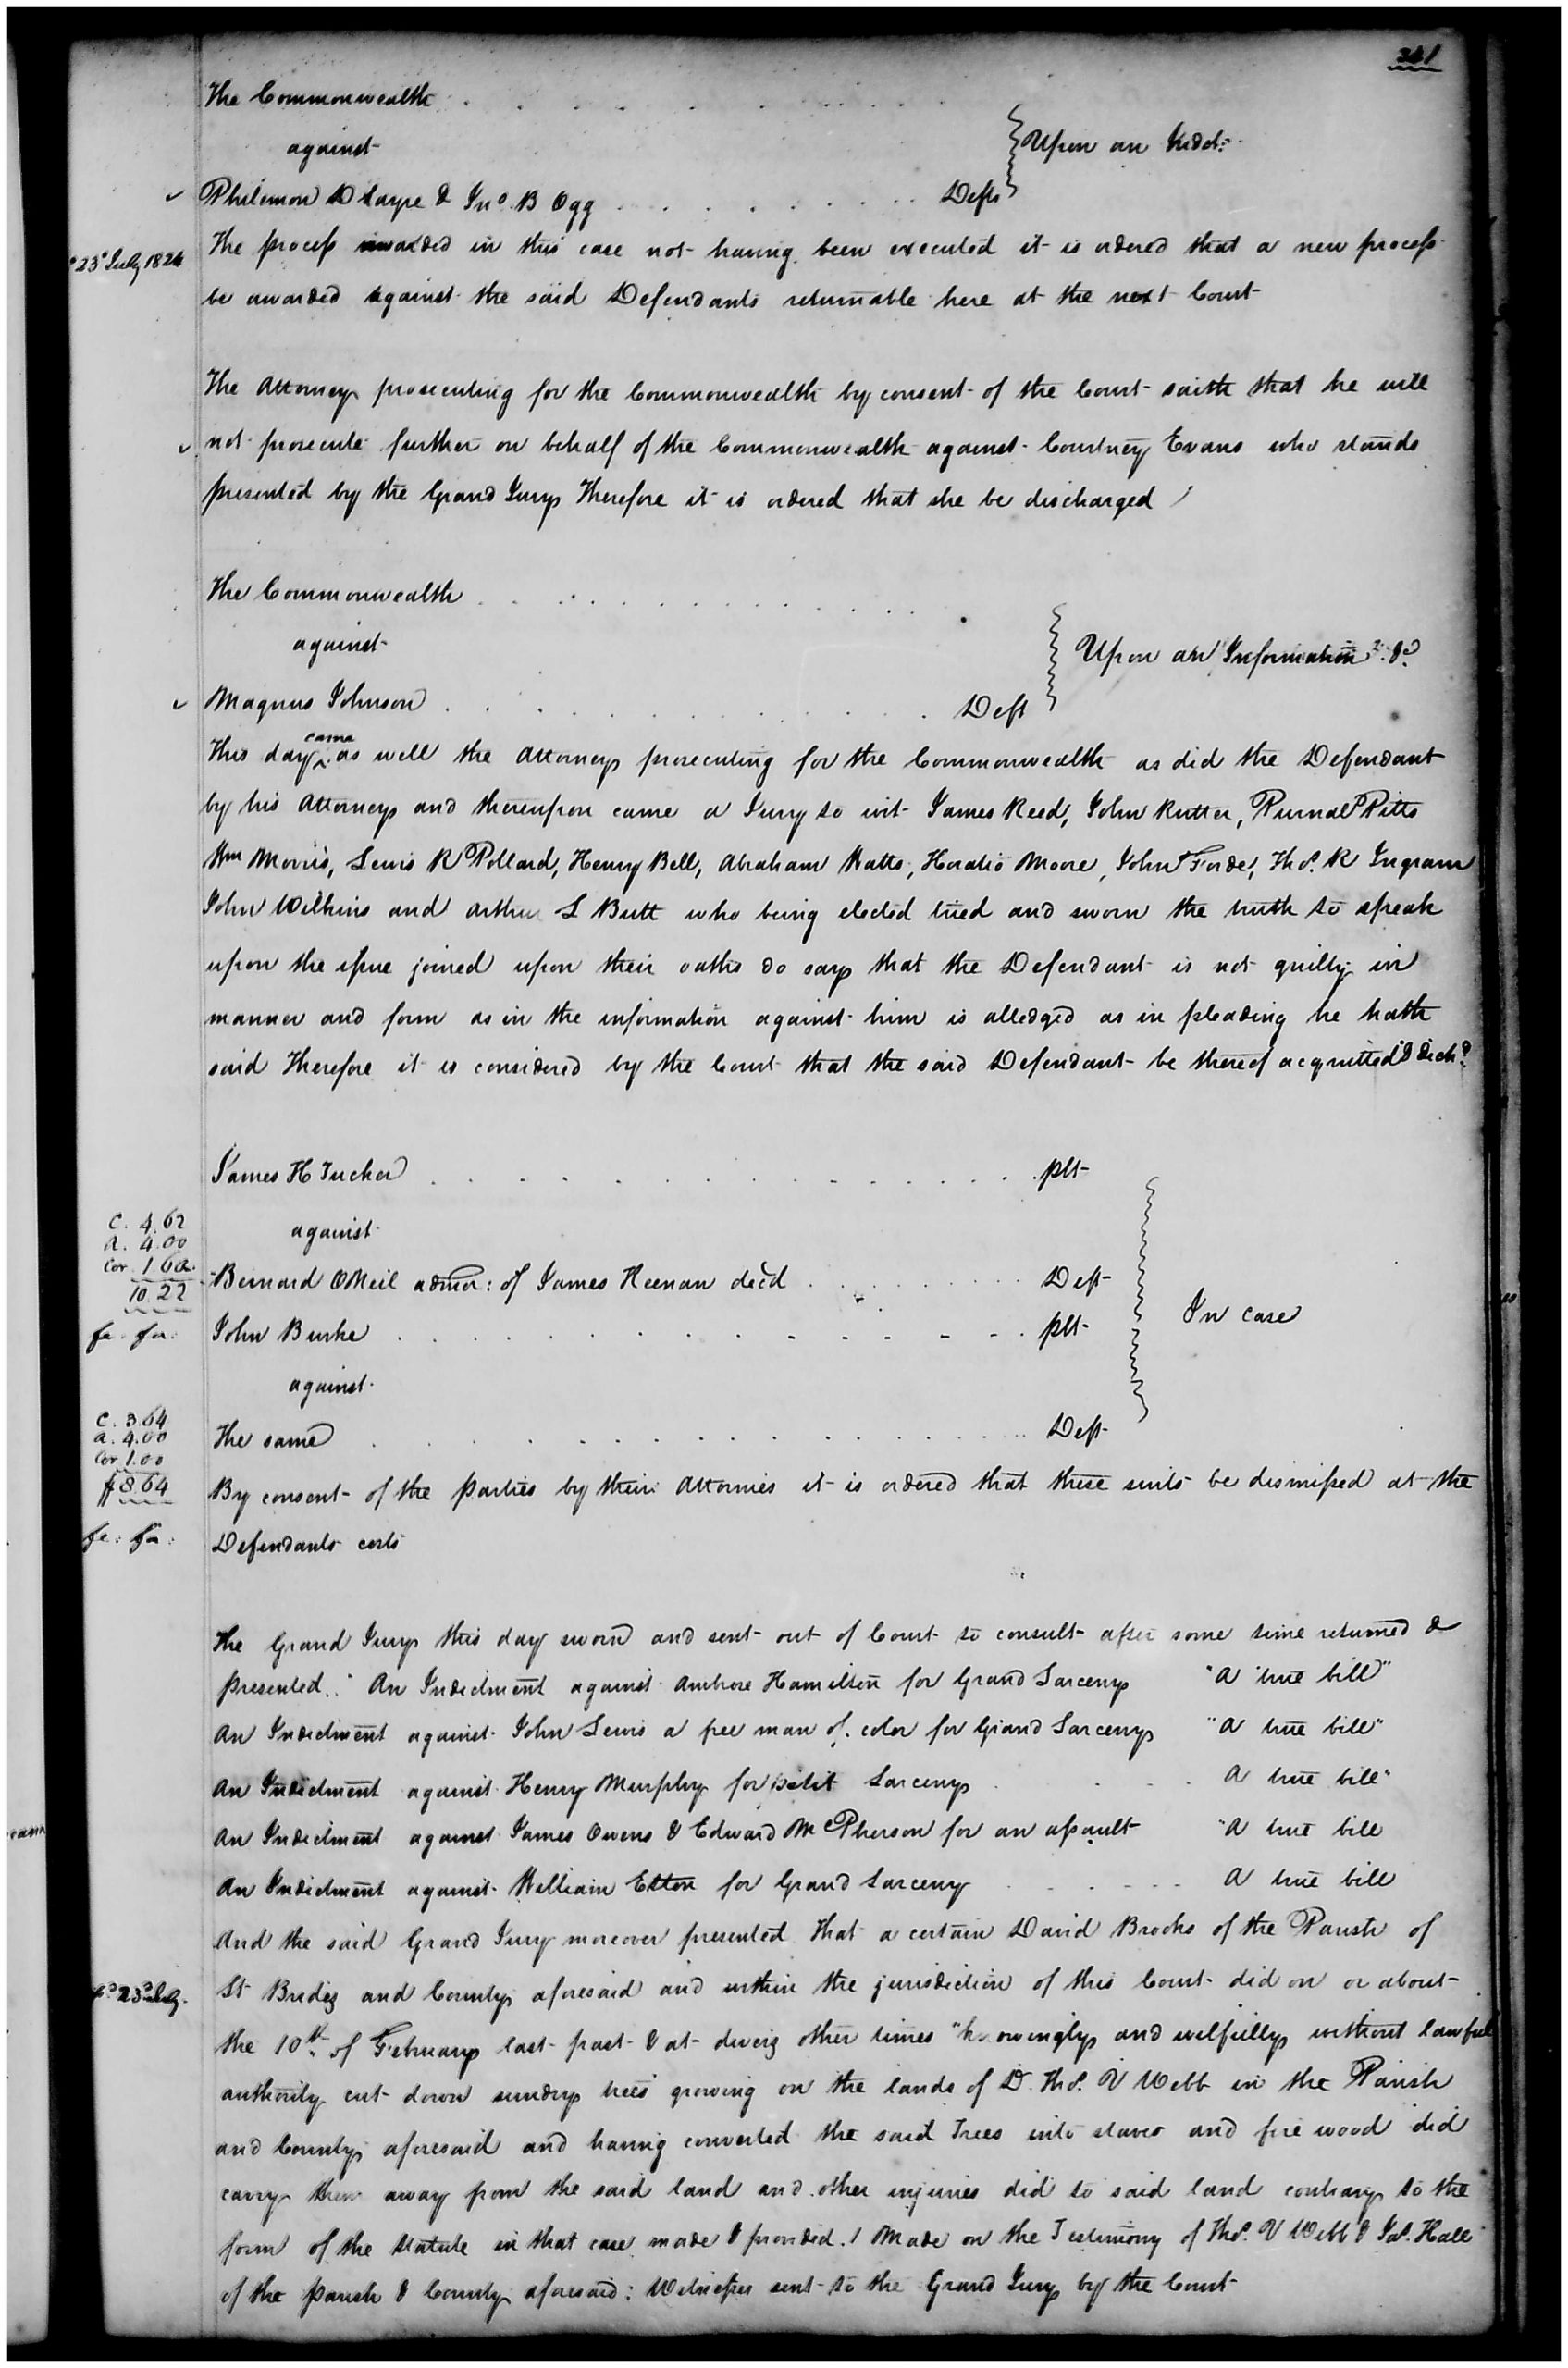 361
The Commonwealth
against
Upon an Indct:
Philemon D Sayre & Jno. B Ogg Defts
23d July 1824
The process awarded in this case not having been executed it is ordered that a new process
be awarded against the said Defendants returnable here at the next Court
The Attorney prosecuting for the Commonwealth by consent of the Court saith that he will
not prosecute further on behalf of the Commonwealth against Courtney Evans who stands
presented by the Grand Jury Therefore it is ordered that she be discharged
The Commonwealth
against
Upon an Information &c.
Magnus Johnson Deft
This day came as well the Attorney prosecuting for the Commonwealth as did the Defendant
by his Attorney and thereupon came a Jury to wit James Reed, John Rutter, Purnal Pitts
Wm Morris, Lewis R Pollard, Henry Bell, Abraham Watts, Horatio Moore, John Forde, Thos. R Ingram
John Wilkins and Arthur L Butt who being elected tried and sworn the truth to speak
upon the issue joined upon their oaths do say that the Defendant is not guilty in
manner and form as in the information against him is alledged as in pleading he hath
said Therefore it is considered by the Court that the said Defendant be thereof acquitted & disch.d
James H Tucker plt
C. 4.62
against
A. 4.00
Cor 1.60
10.22
Bernard ONeil admor: of James Heenan decd Deft
In case
fi. fa.
John Burke plt
against
C. 3.64
A. 4.00
Cor 1.00
$8.64
The same Deft
By consent of the parties by their Attornies it is ordered that these suits be dismissed at the
fi. fa.
Defendants costs
The Grand Jury this day sworn and sent out of Court to consult after some time returned &
presented. "An Indictment against Ambrose Hamilton for Grand Larceny "A true bill"
An Indictment against John Lewis a free man of color for Grand Larceny "A true bill"
An Indictment against Henry Murphy for petit Larceny A true bill"
An Indictment against James Owens & Edward McPherson for an assault "A true bill
An Indictment against William Etton for Grand Larceny A true bill
And the said Grand Jury moreover presented that a certain David Brooks of the Parish of
23d July
St Brides and County aforesaid and within the jurisdiction of this Court did on or about
the 10th of February last past & at divers other times "knowingly and wilfully without lawful
authority cut down sundry trees growing on the lands of D. Thos. V Webb in the Parish
and County aforesaid and having converted the said Trees into staves and fire wood did
carry them away from the said land and other injuries did to said land contrary to the
form of the statute in that case made & provided. Made on the Testimony of Thos. V Webb & Jas. Hall
of the parish & County aforesaid: Witnesses sent to the Grand Jury by the Court